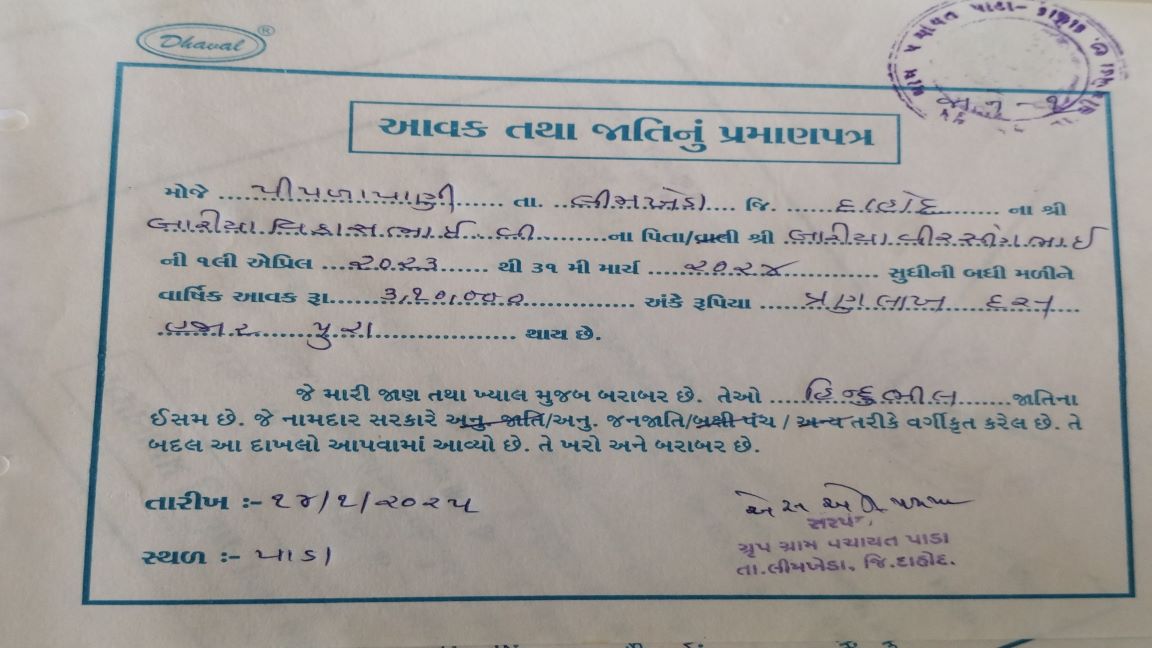 Dhaval ®
આવક તથા જાતિનું પ્રમાણપત્ર
મોજે ....પીપળાપાણી..... તા. ..લીમખેડા.... જિ. .....દાહોદ....... ના શ્રી
બારીયા વિકાસભાઈ બી.........ના પિતા/વાલી શ્રી બારીયા બીરસીંગભાઈ
ની ૧લી એપ્રિલ ...૨૦૨૩...... થી ૩૧ મી માર્ચ ....૨૦૨૪.......... સુધીની બધી મળીને
વાર્ષિક આવક રૂા......૩,૧૦,૦૦૦............. અંકે રૂપિયા .....ત્રણ લાખ દસ
હજાર પુરા.................. થાય છે.
જે મારી જાણ તથા ખ્યાલ મુજબ બરાબર છે. તેઓ ....હિન્દુ ભીલ.......જાતિના
ઈસમ છે. જે નામદાર સરકારે અનુ. જાતિ/અનુ. જનજાતિ/બક્ષી પંચ / અન્ય તરીકે વર્ગીકૃત કરેલ છે. તે
બદલ આ દાખલો આપવામાં આવ્યો છે. તે ખરો અને બરાબર છે.
તારીખ :- ૧૪/૧/૨૦૨૫
સરપંચ
સ્થળ :- પાડા
ગ્રુપ ગ્રામ પંચાયત પાડા
તા.લીમખેડા, જિ.દાહોદ.